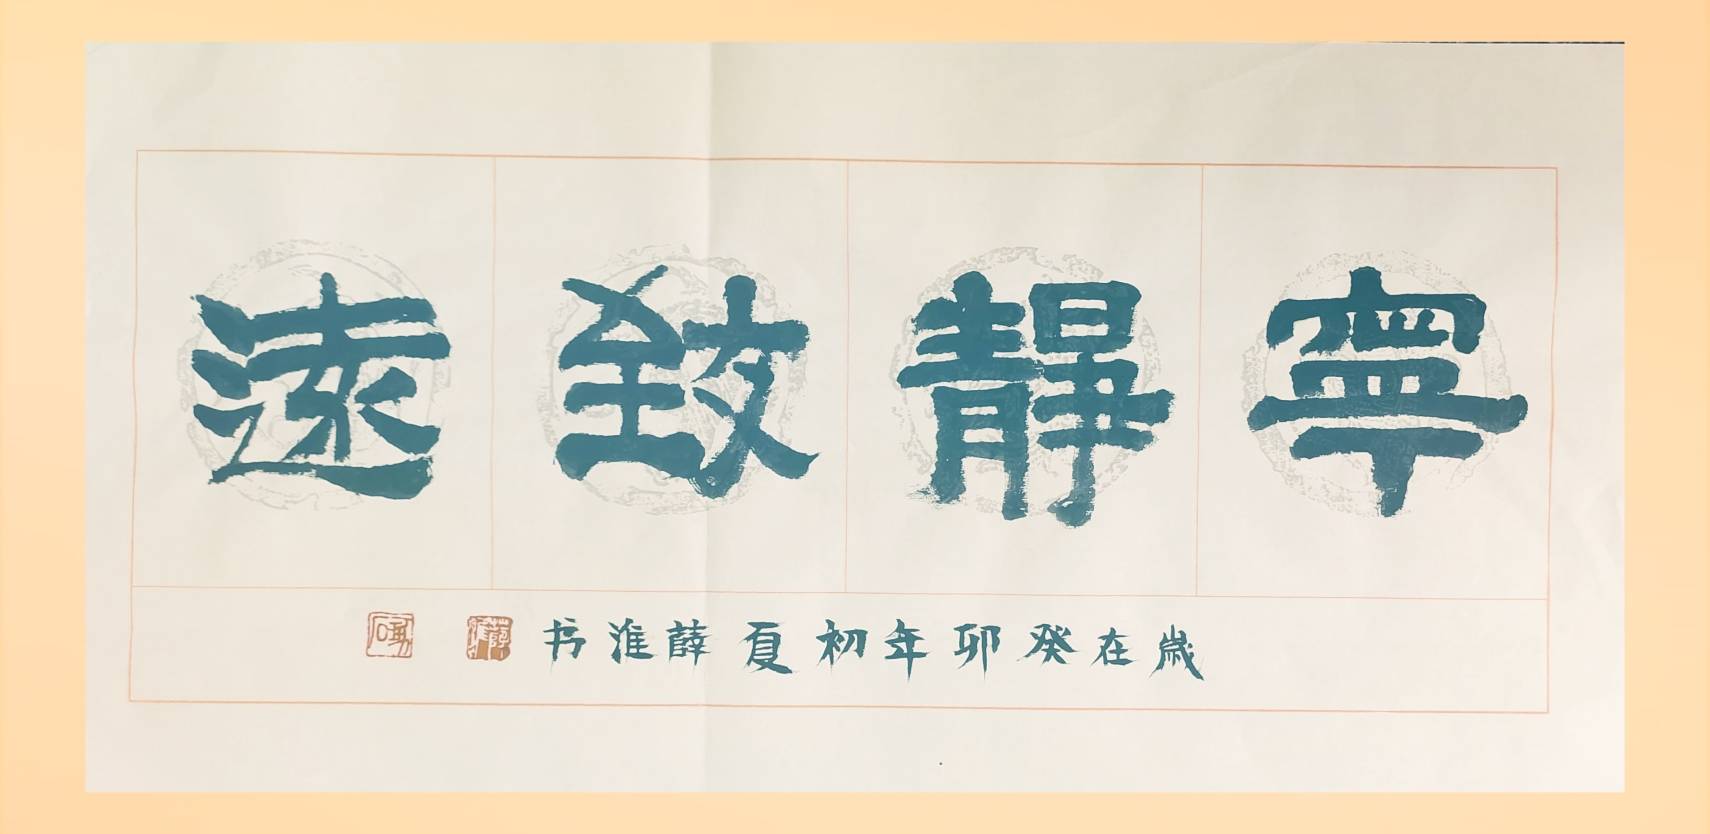 寧靜致遠
歲在癸卯年初夏薛淮书